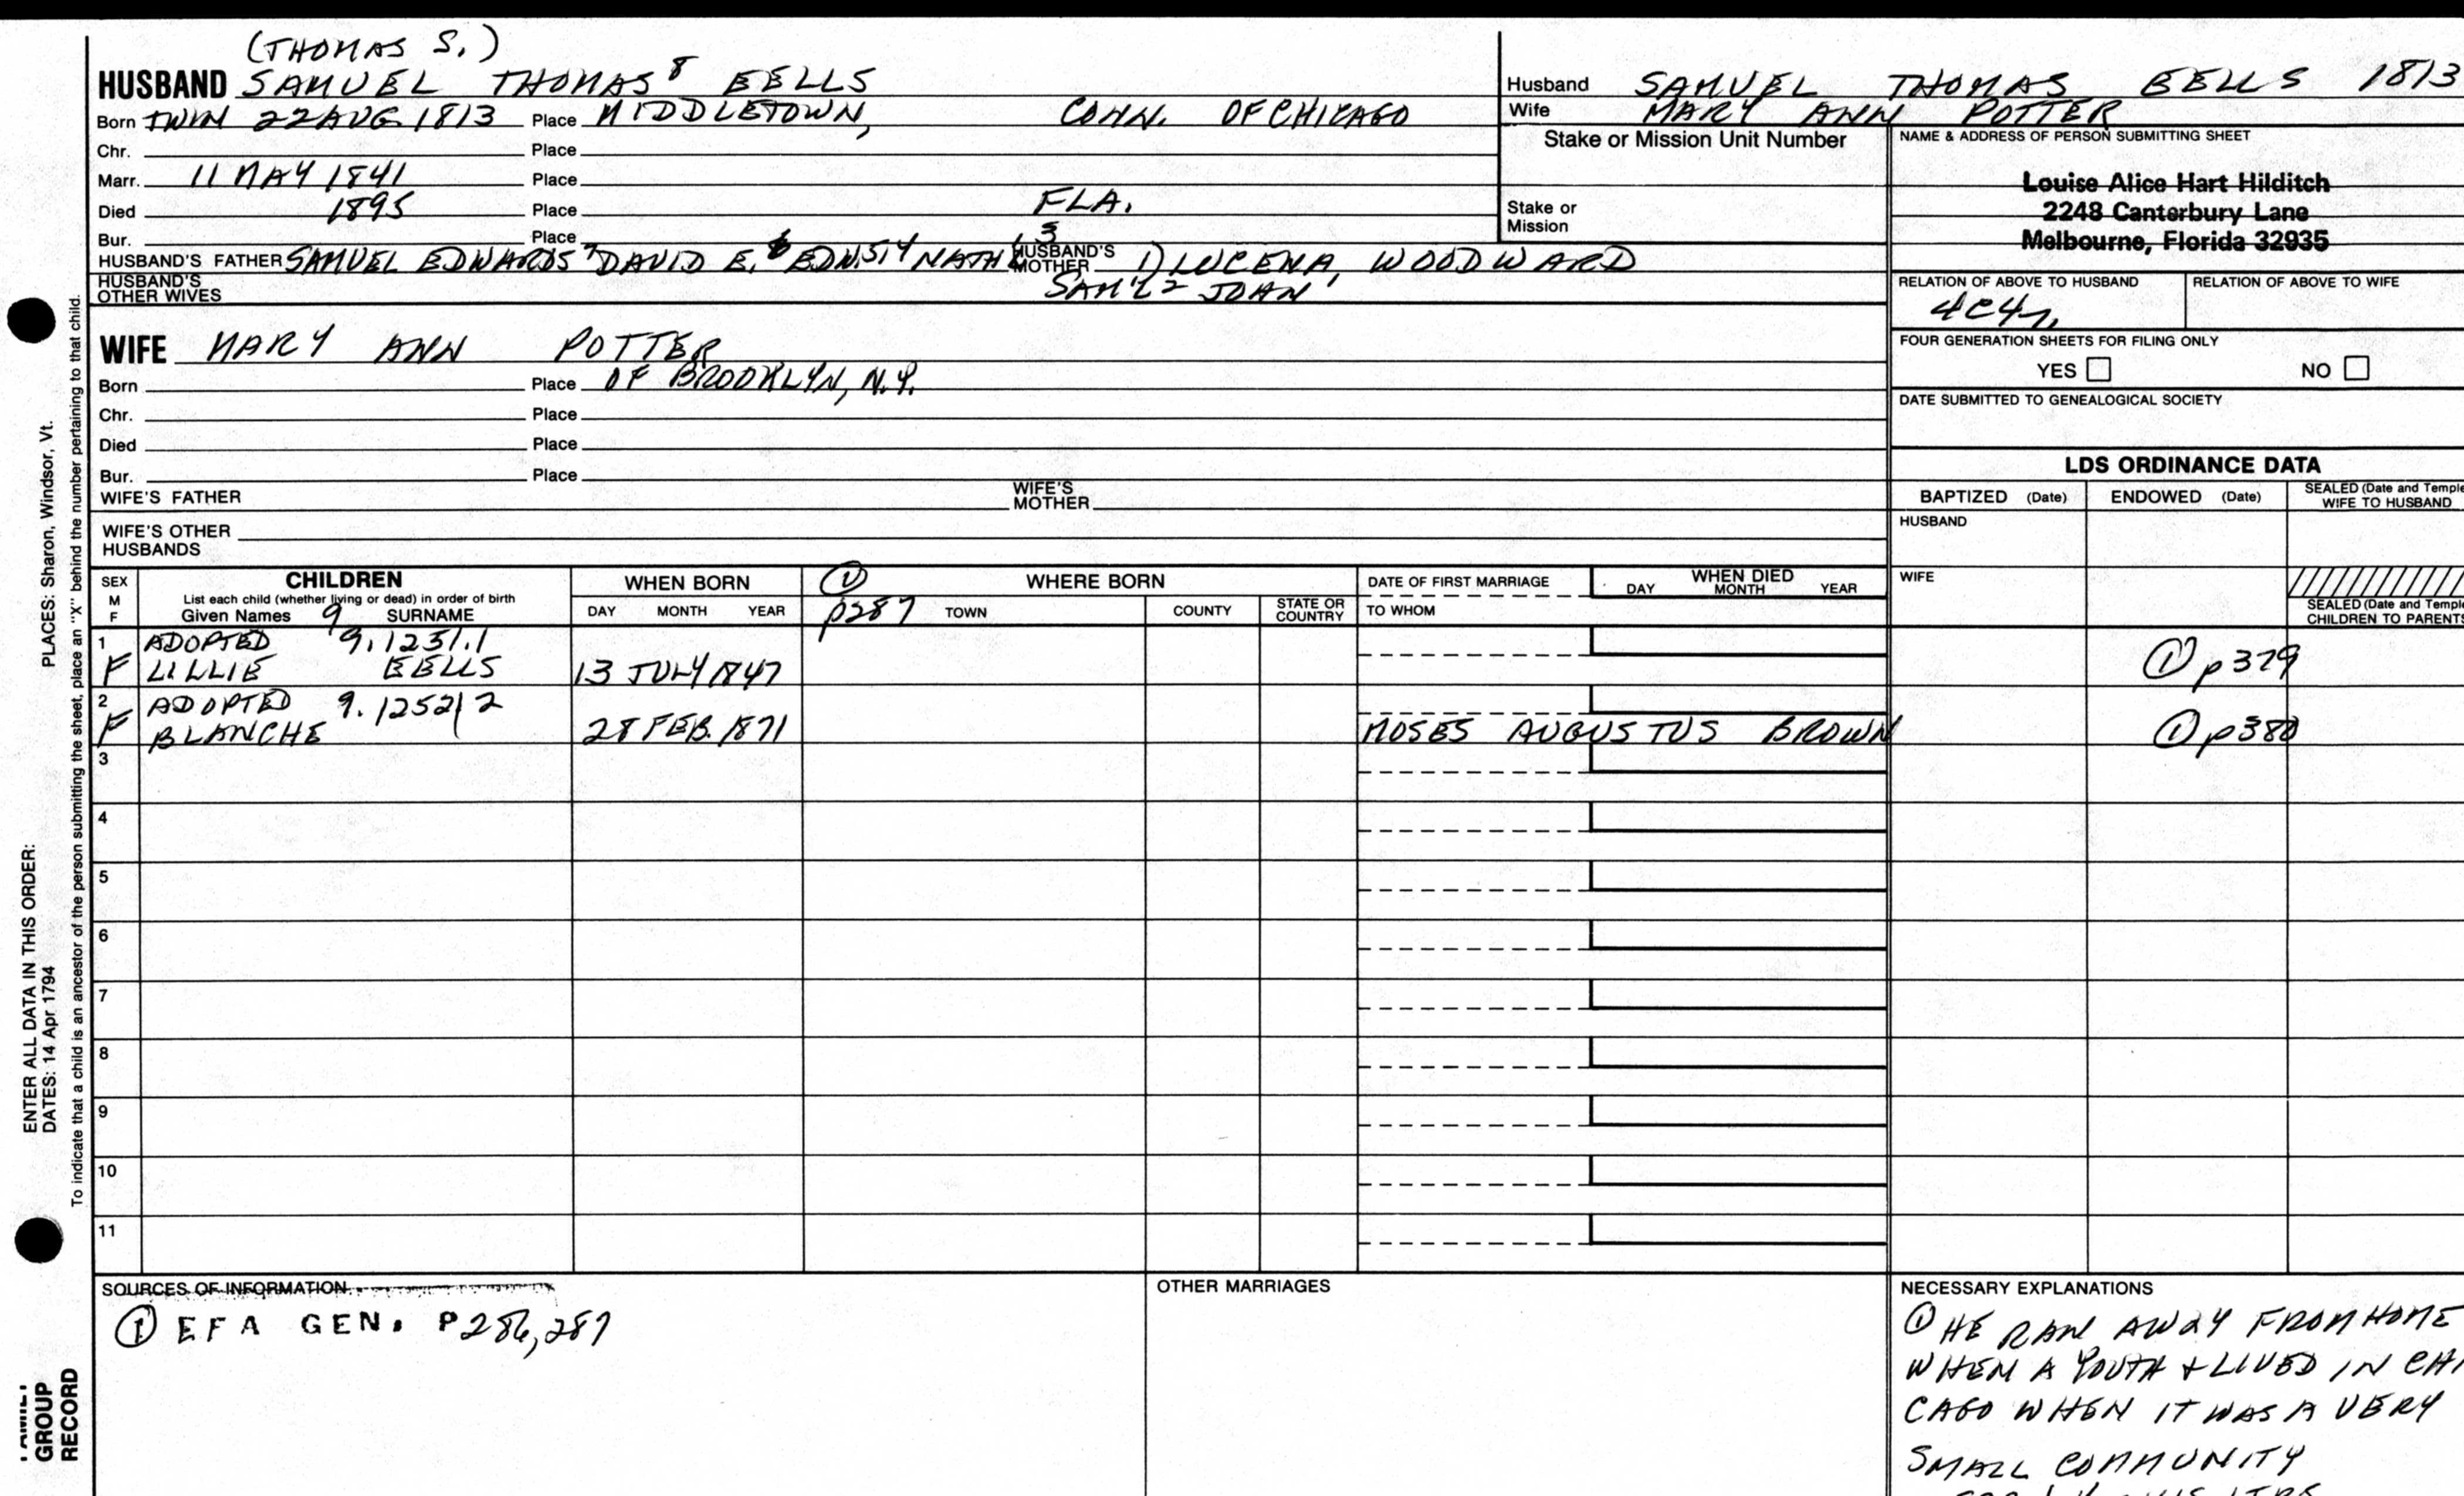 (THOMAS S.)
HUSBAND SAMUEL THOMAS 8 EELLS
Born TWIN 22 AUG. 1813 Place MIDDLETOWN, CONN. OF CHICAGO
Chr. Place
Marr. 11 MAY 1841 Place
Died 1895 Place FLA.
Bur. Place
HUSBAND'S FATHER SAMUEL EDWARDS 7 DAVID E. 6 EDW. 5, 4 NATH'L 3 HUSBAND'S MOTHER 1) LUCENA WOODWARD
HUSBAND'S OTHER WIVES SAM'L 2 JOHN 1
WIFE MARY ANN POTTER
Born Place OF BROOKLYN, N.Y.
Chr. Place
Died Place
Bur. Place
WIFE'S FATHER WIFE'S MOTHER
WIFE'S OTHER HUSBANDS
Husband SAMUEL THOMAS EELLS 1813
Wife MARY ANN POTTER
Stake or Mission Unit Number
Stake or
Mission
NAME & ADDRESS OF PERSON SUBMITTING SHEET
Louise Alice Hart Hilditch
2248 Canterbury Lane
Melbourne, Florida 32935
RELATION OF ABOVE TO HUSBAND RELATION OF ABOVE TO WIFE
4C4r.
FOUR GENERATION SHEETS FOR FILING ONLY
YES NO
DATE SUBMITTED TO GENEALOGICAL SOCIETY
LDS ORDINANCE DATA
BAPTIZED (Date) ENDOWED (Date) SEALED (Date and Temple
WIFE TO HUSBAND
HUSBAND
WIFE
SEALED (Date and Temple
CHILDREN TO PARENTS
SEX
M
F
CHILDREN
List each child (whether living or dead) in order of birth
Given Names 9 SURNAME
WHEN BORN
DAY MONTH YEAR
① WHERE BORN
p287 TOWN COUNTY STATE OR COUNTRY
DATE OF FIRST MARRIAGE
TO WHOM
WHEN DIED
DAY MONTH YEAR
1 ADOPTED 9.1251.1
F LILLIE EELLS 13 JULY 1847 ① p379
2 ADOPTED 9.1252 2
F BLANCHE 28 FEB. 1871 MOSES AUGUSTUS BROWN ① p380
3
4
5
6
7
8
9
10
11
SOURCES OF INFORMATION
① EFA GEN. P286,287
OTHER MARRIAGES
NECESSARY EXPLANATIONS
① HE RAN AWAY FROM HOME
WHEN A YOUTH & LIVED IN CHI
CAGO WHEN IT WAS A VERY
SMALL COMMUNITY
PLACES: Sharon, Windsor, Vt.
ENTER ALL DATA IN THIS ORDER:
DATES: 14 Apr 1794
To indicate that a child is an ancestor of the person submitting the sheet, place an "X" behind the number pertaining to that child.
FAMILY
GROUP
RECORD